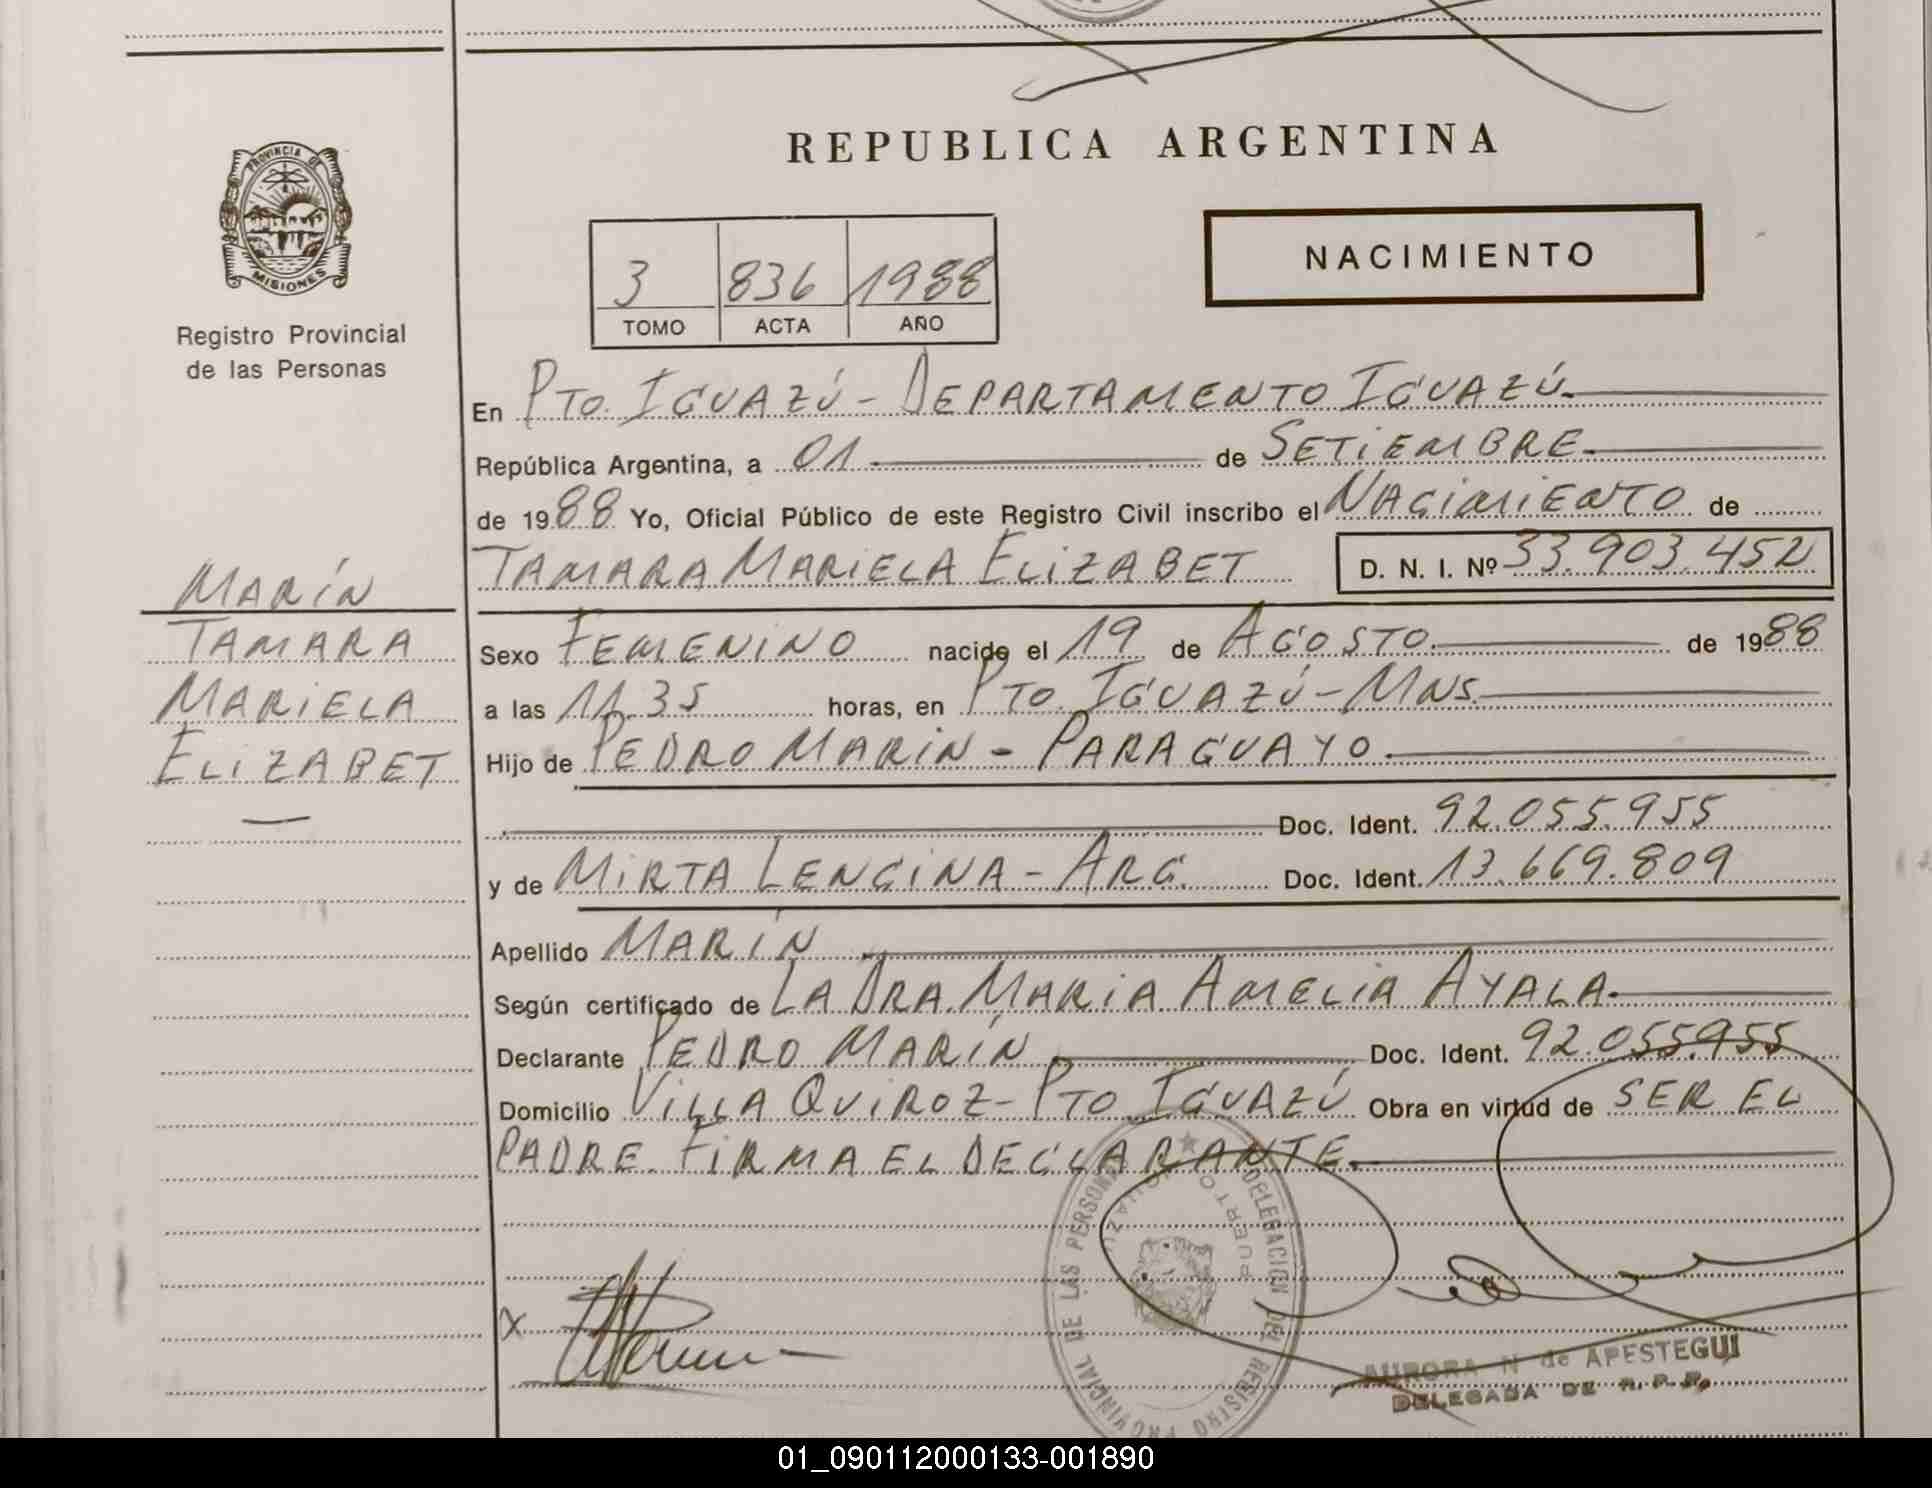 REPUBLICA ARGENTINA
PROVINCIA DE
MISIONES
Registro Provincial
de las Personas
NACIMIENTO
3 836 1988
TOMO ACTA AÑO
En PTO. IGUAZÚ - DEPARTAMENTO IGUAZÚ.
República Argentina, a 01 de SETIEMBRE.
de 1988 Yo, Oficial Público de este Registro Civil inscribo el NACIMIENTO de
TAMARA MARIELA ELIZABET D. N. I. Nº 33.903.452
MARÍN
TAMARA
MARIELA
ELIZABET
Sexo FEMENINO nacido el 19 de AGOSTO. de 1988
a las 11.35 horas, en PTO. IGUAZÚ - MNS.
Hijo de PEDRO MARIN - PARAGUAYO.
Doc. Ident. 92.055.955
y de MIRTA LENCINA - ARG. Doc. Ident. 13.669.809
Apellido MARÍN
Según certificado de LA DRA. MARIA AMELIA AYALA.
Declarante PEDRO MARÍN Doc. Ident. 92.055.955
Domicilio VILLA QUIROZ - PTO IGUAZÚ Obra en virtud de SER EL
PADRE. FIRMA EL DECLARANTE.
DELEGACION DEL REGISTRO PROVINCIAL DE LAS PERSONAS
PUERTO IGUAZU
X
AURORA N de APESTEGUI
DELEGADA DE R. P. P.
01_090112000133-001890